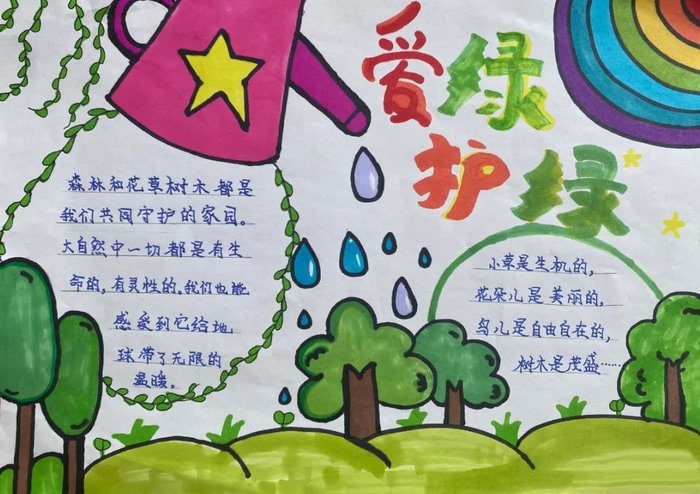 爱绿
护绿
森林和花草树木都是
我们共同守护的家园。
大自然中一切都是有生
命的,有灵性的。我们也能
感受到它给地
球带了无限的
温暖。
小草是生机的,
花朵儿是美丽的,
鸟儿是自由自在的,
树木是茂盛……